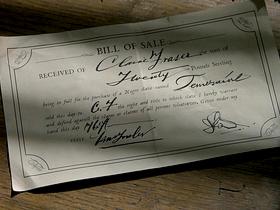 BILL OF SALE
RECEIVED OF Claire Fraser the sum of
Twenty Pounds Sterling
being in full for the purchase of a Negro slave named Temeraire
sold this day to C.F. the right and title to which slave I hereby warrant
and defend against the claims or claims of all persons whatsoever. Given under my
hand this day